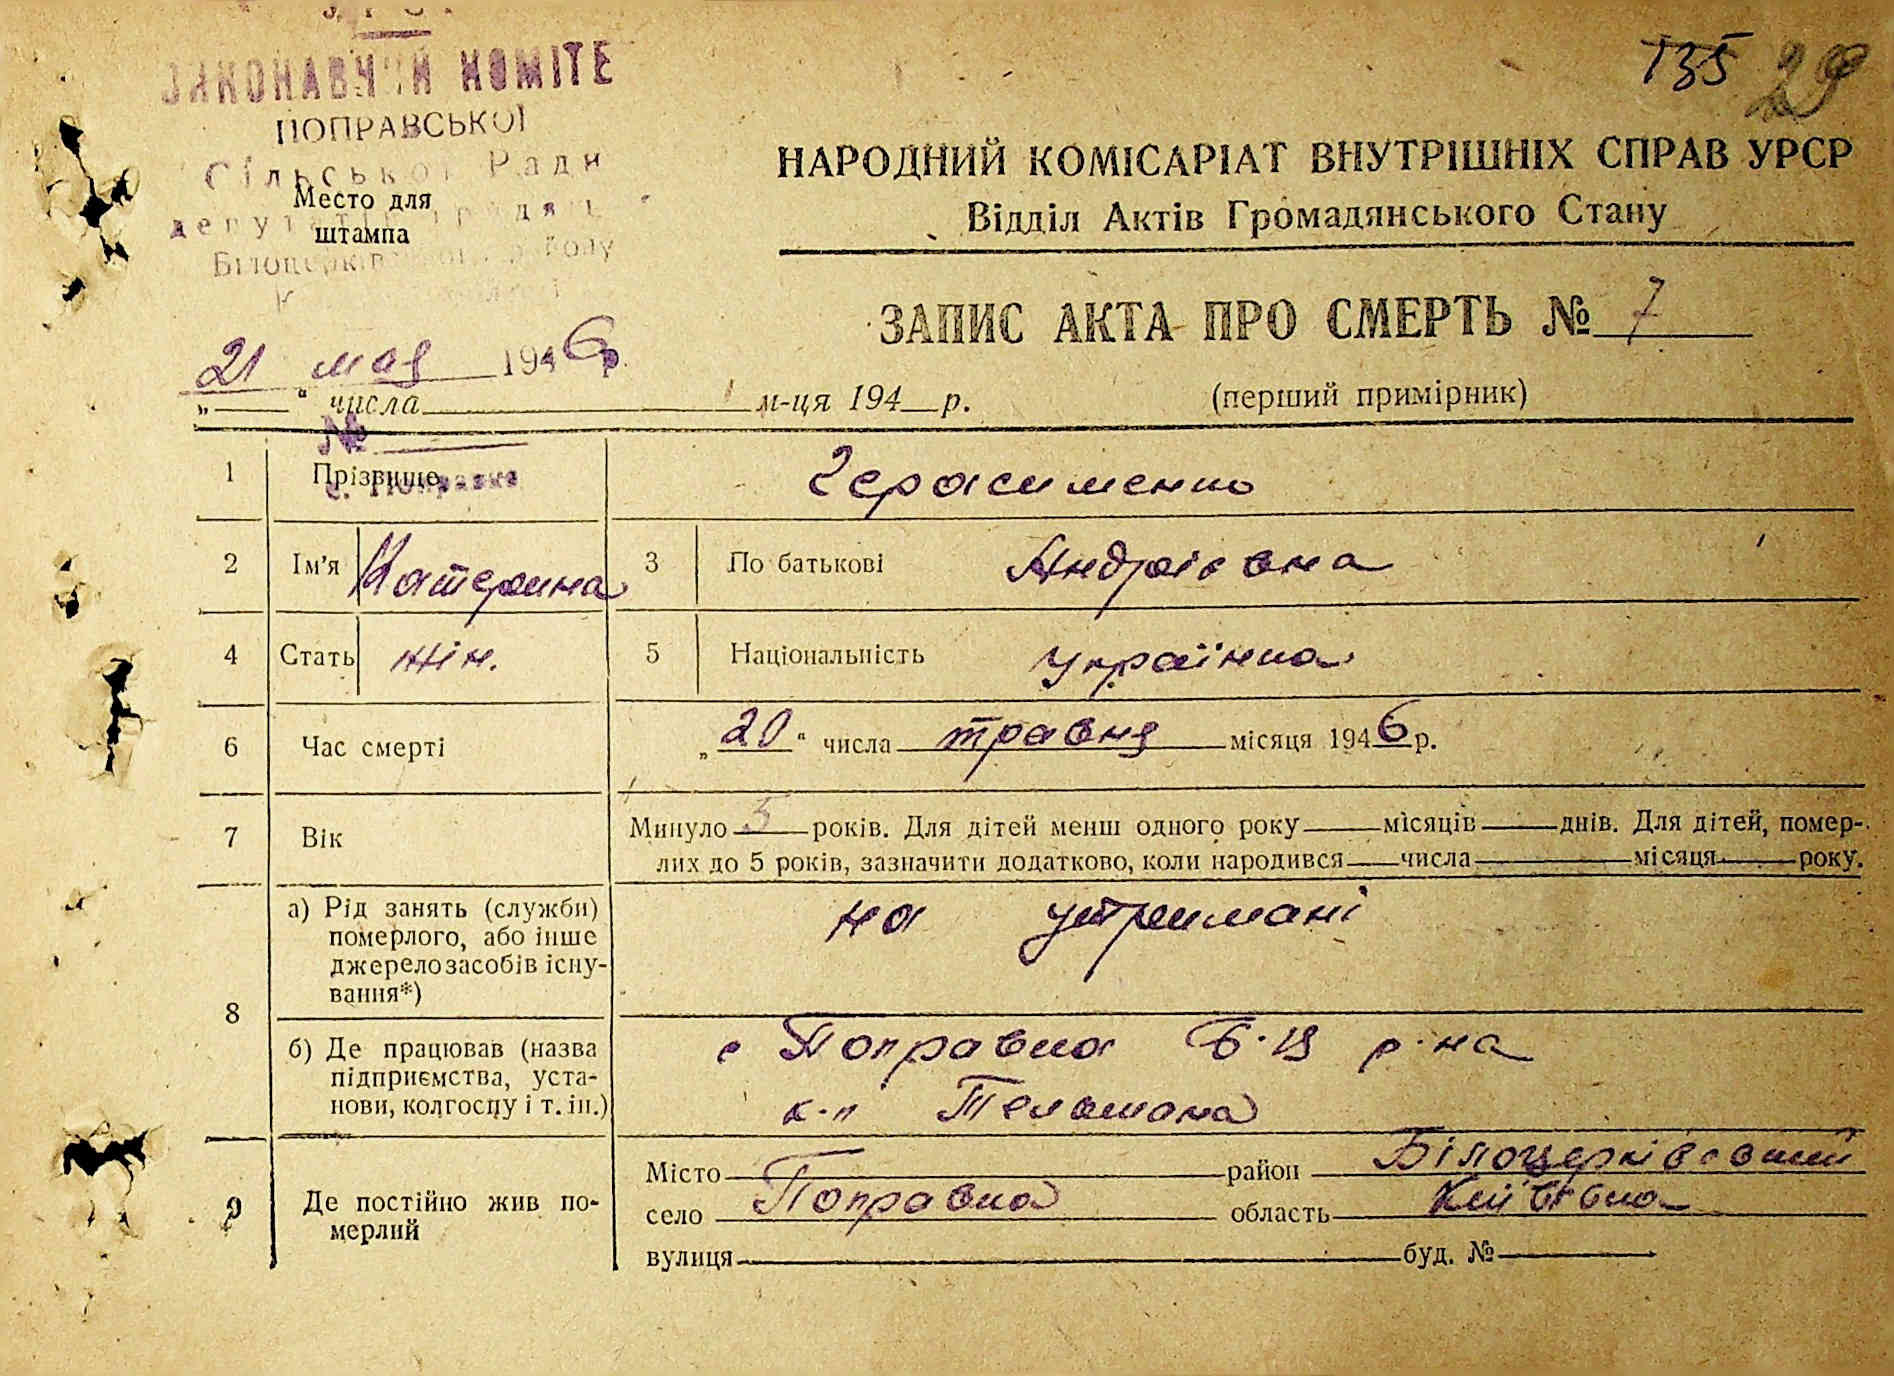 УРСР
ВИКОНАВЧИЙ КОМІТЕ
ПОПРАВСЬКОЇ
Сільської Ради
депутатів трудящ
Білоцерківського району
Место для
штампа
135 29
НАРОДНИЙ КОМІСАРІАТ ВНУТРІШНІХ СПРАВ УРСР
Відділ Актів Громадянського Стану
ЗАПИС АКТА ПРО СМЕРТЬ № 7
21 мая 1946 р.
„ “ числа м-ця 194 р. (перший примірник)
№
с. Поправка
1 Прізвище Герасименко
2 Ім'я Катерина 3 По батькові Андріівна
4 Стать жін. 5 Національність українка
6 Час смерті „20“ числа травня місяця 1946 р.
7 Вік Минуло 5 років. Для дітей менш одного року місяців днів. Для дітей, помер-
лих до 5 років, зазначити додатково, коли народився числа місяця року.
8 а) Рід занять (служби) померлого, або інше джерело засобів існу- вання*) на утримані
б) Де працював (назва підприємства, уста- нови, колгоспу і т. ін.) с Поправка Б-Ц р-на
к-п Тельмана
9 Де постійно жив по- мерлий
Місто район Білоцерківський
село Поправка область Київська
вулиця буд. №